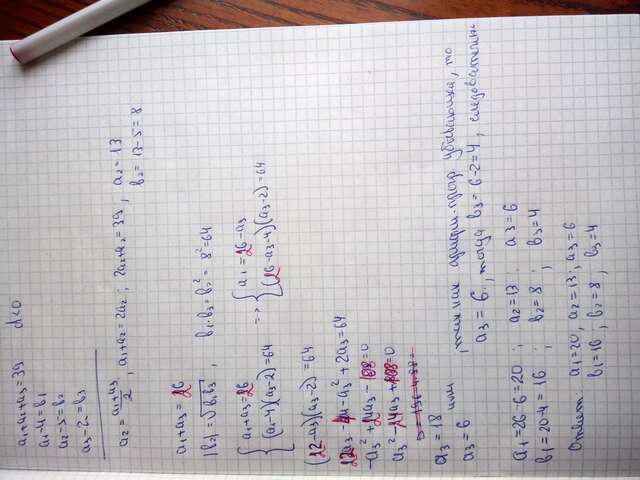 a₁+a₂+a₃=39   d<0
a₁-4=b₁
a₂-5=b₂
a₃-2=b₃
a₂ = (a₁+a₃)/2 , a₁+a₃=2a₂ ; 2a₂+a₂=39 , a₂=13
b₂=13-5=8
a₁+a₃=26
|b₂|=√b₁b₃ , b₁·b₃=b₂²=8²=64
{ a₁+a₃=26   => { a₁=26-a₃
(a₁-4)(a₃-2)=64   (26-a₃-4)(a₃-2)=64
(22-a₃)(a₃-2)=64
22a₃-44-a₃²+2a₃=64
-a₃²+24a₃-108=0
a₃²-24a₃+108=0
a₃=18 или
a₃=6
, так как арифм. прогр убывающая, то
a₃=6, тогда b₃=6-2=4, следовательно
a₁=26-6=20 ; a₂=13 ; a₃=6
b₁=20-4=16 ; b₂=8 ; b₃=4
Ответ: a₁=20, a₂=13, a₃=6
b₁=16 ; b₂=8 , b₃=4